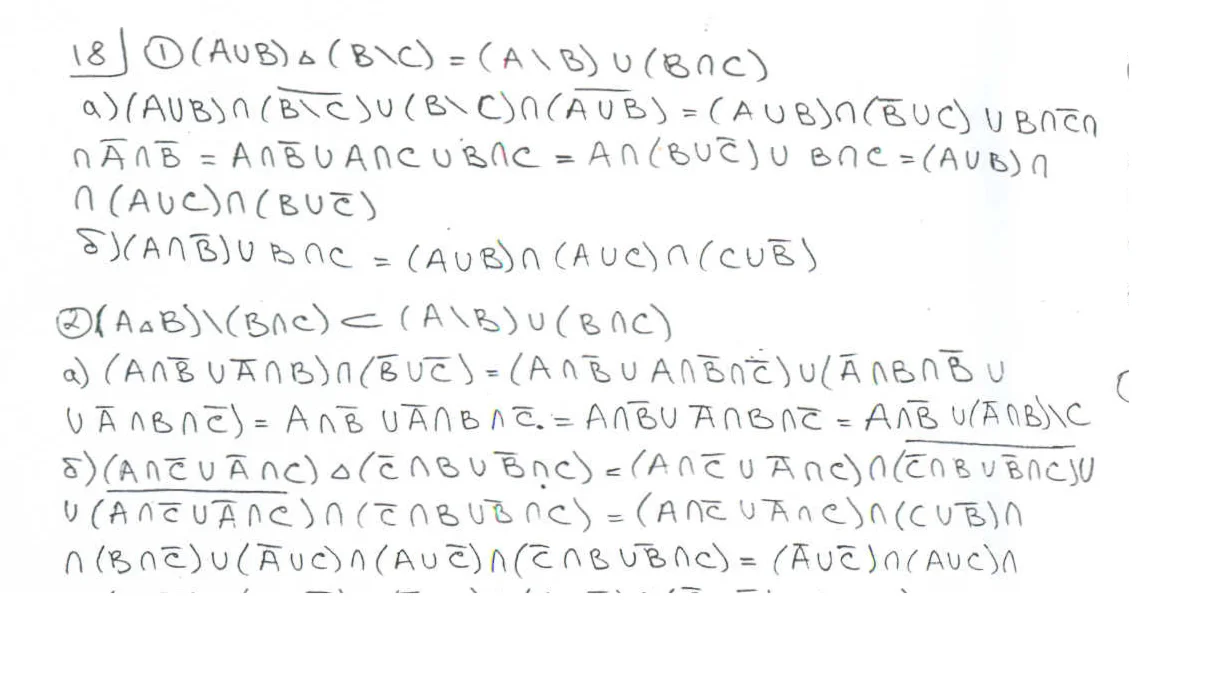 18) ① (A∪B) △ (B\C) = (A\B) ∪ (B∩C)
а) (A∪B)∩(\overline{B\C})∪(B\C)∩(\overline{A∪B}) = (A∪B)∩(B̅∪C) ∪ B∩C̅∩
∩ A̅∩B̅ = A∩B̅ ∪ A∩C ∪ B∩C = A∩(B∪C̅)∪ B∩C = (A∪B)∩
∩ (A∪C)∩(B∪C̅)
б) (A∩B̅)∪ B∩C = (A∪B)∩(A∪C)∩(C∪B̅)
② (A△B)\(B∩C) ⊂ (A\B)∪(B∩C)
а) (A∩B̅ ∪ A̅∩B)∩(B̅∪C̅) = (A∩B̅ ∪ A∩B̅∩C̅)∪(A̅∩B∩B̅ ∪
∪ A̅∩B∩C̅) = A∩B̅ ∪A̅∩B∩C̅. = A∩B̅∪ A̅∩B∩C̅ = A∩B̅ ∪(A̅∩B)\C
б) (A∩C̅ ∪ A̅∩C) △ (C̅∩B ∪ B̅∩C) = (A∩C̅ ∪ A̅∩C)∩(\overline{C̅∩B ∪ B̅∩C})∪
∪ (\overline{A∩C̅ ∪A̅∩C})∩(C̅∩B ∪B̅∩C) = (A∩C̅ ∪ A̅∩C)∩(C∪B̅)∩
∩ (B∩C̅)∪(A̅∪C)∩(A∪C̅)∩(C̅∩B ∪B̅∩C) = (A̅∪C̅)∩(A∪C)∩